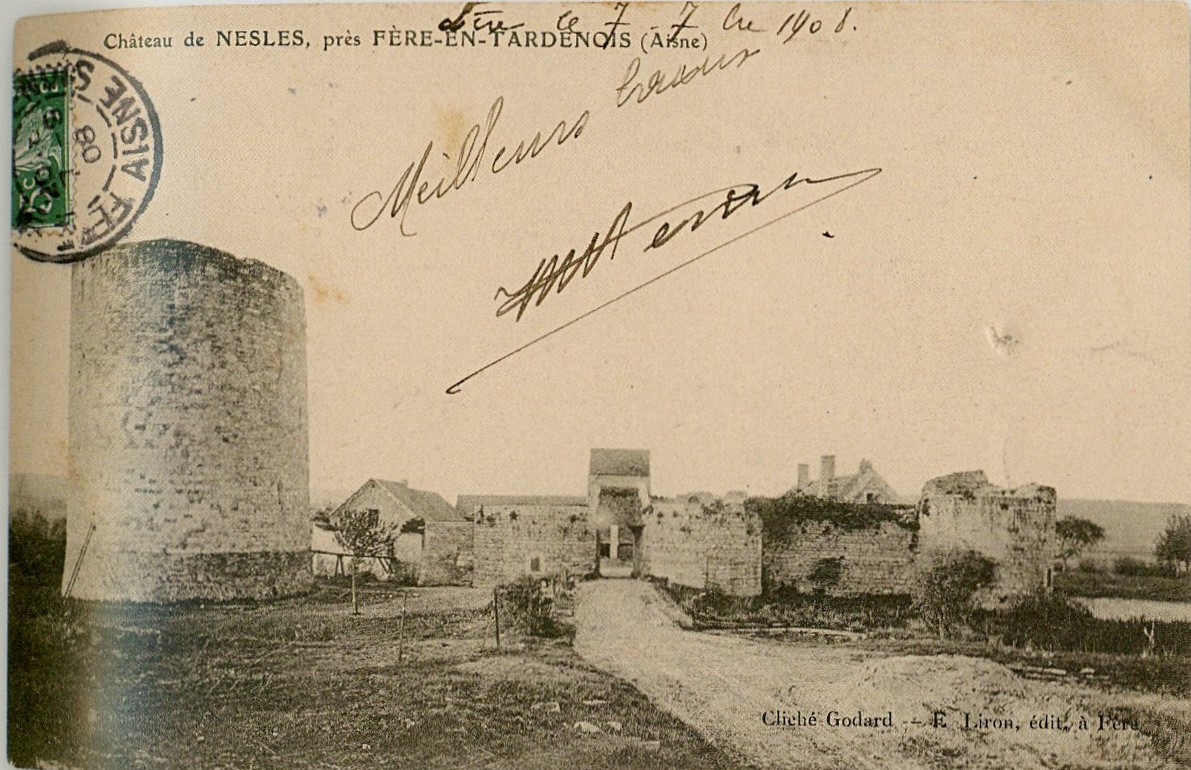 Fère le 7-7bre 1908.
Château de NESLES, près FÈRE-EN-TARDENOIS (Aisne)
AISNE
08
Meilleurs
Cliché Godard -- E. Liron, édit. à Fère